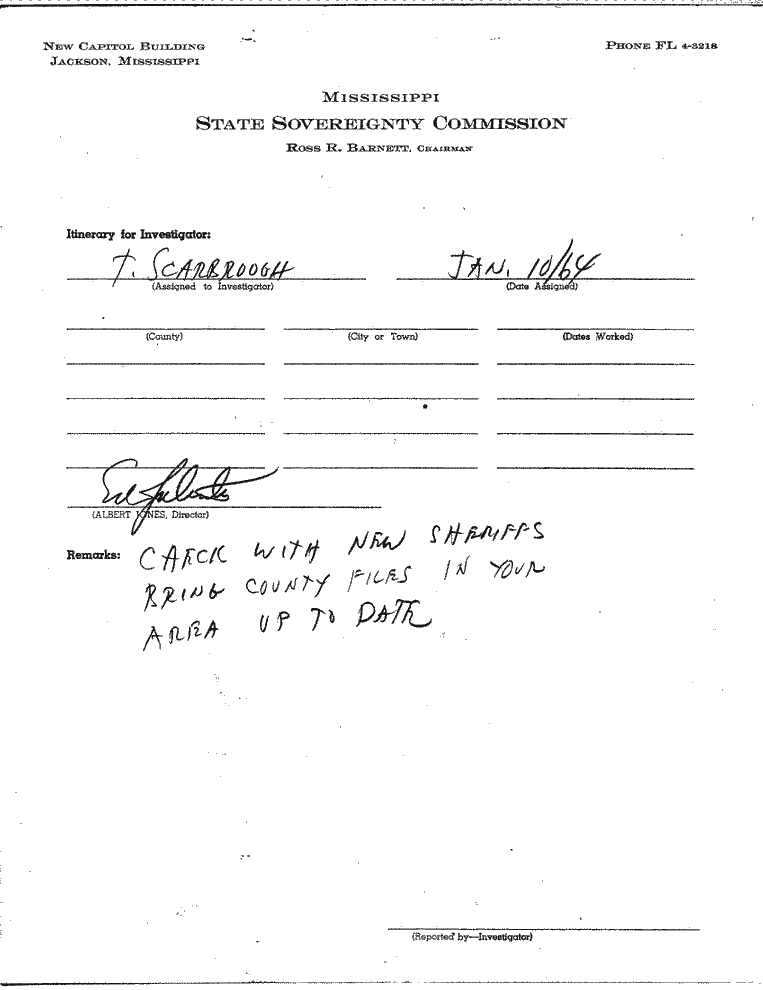 NEW CAPITOL BUILDING
JACKSON, MISSISSIPPI
PHONE FL 4-3218
MISSISSIPPI
STATE SOVEREIGNTY COMMISSION
ROSS R. BARNETT, CHAIRMAN
Itinerary for Investigator:
T. SCARBROOGH JAN. 10/64
(Assigned to Investigator) (Date Assigned)
(County) (City or Town) (Dates Worked)
(ALBERT JONES, Director)
Remarks: CHECK WITH NEW SHERIFFS
BRING COUNTY FILES IN YOUR
AREA UP TO DATE
(Reported by—Investigator)